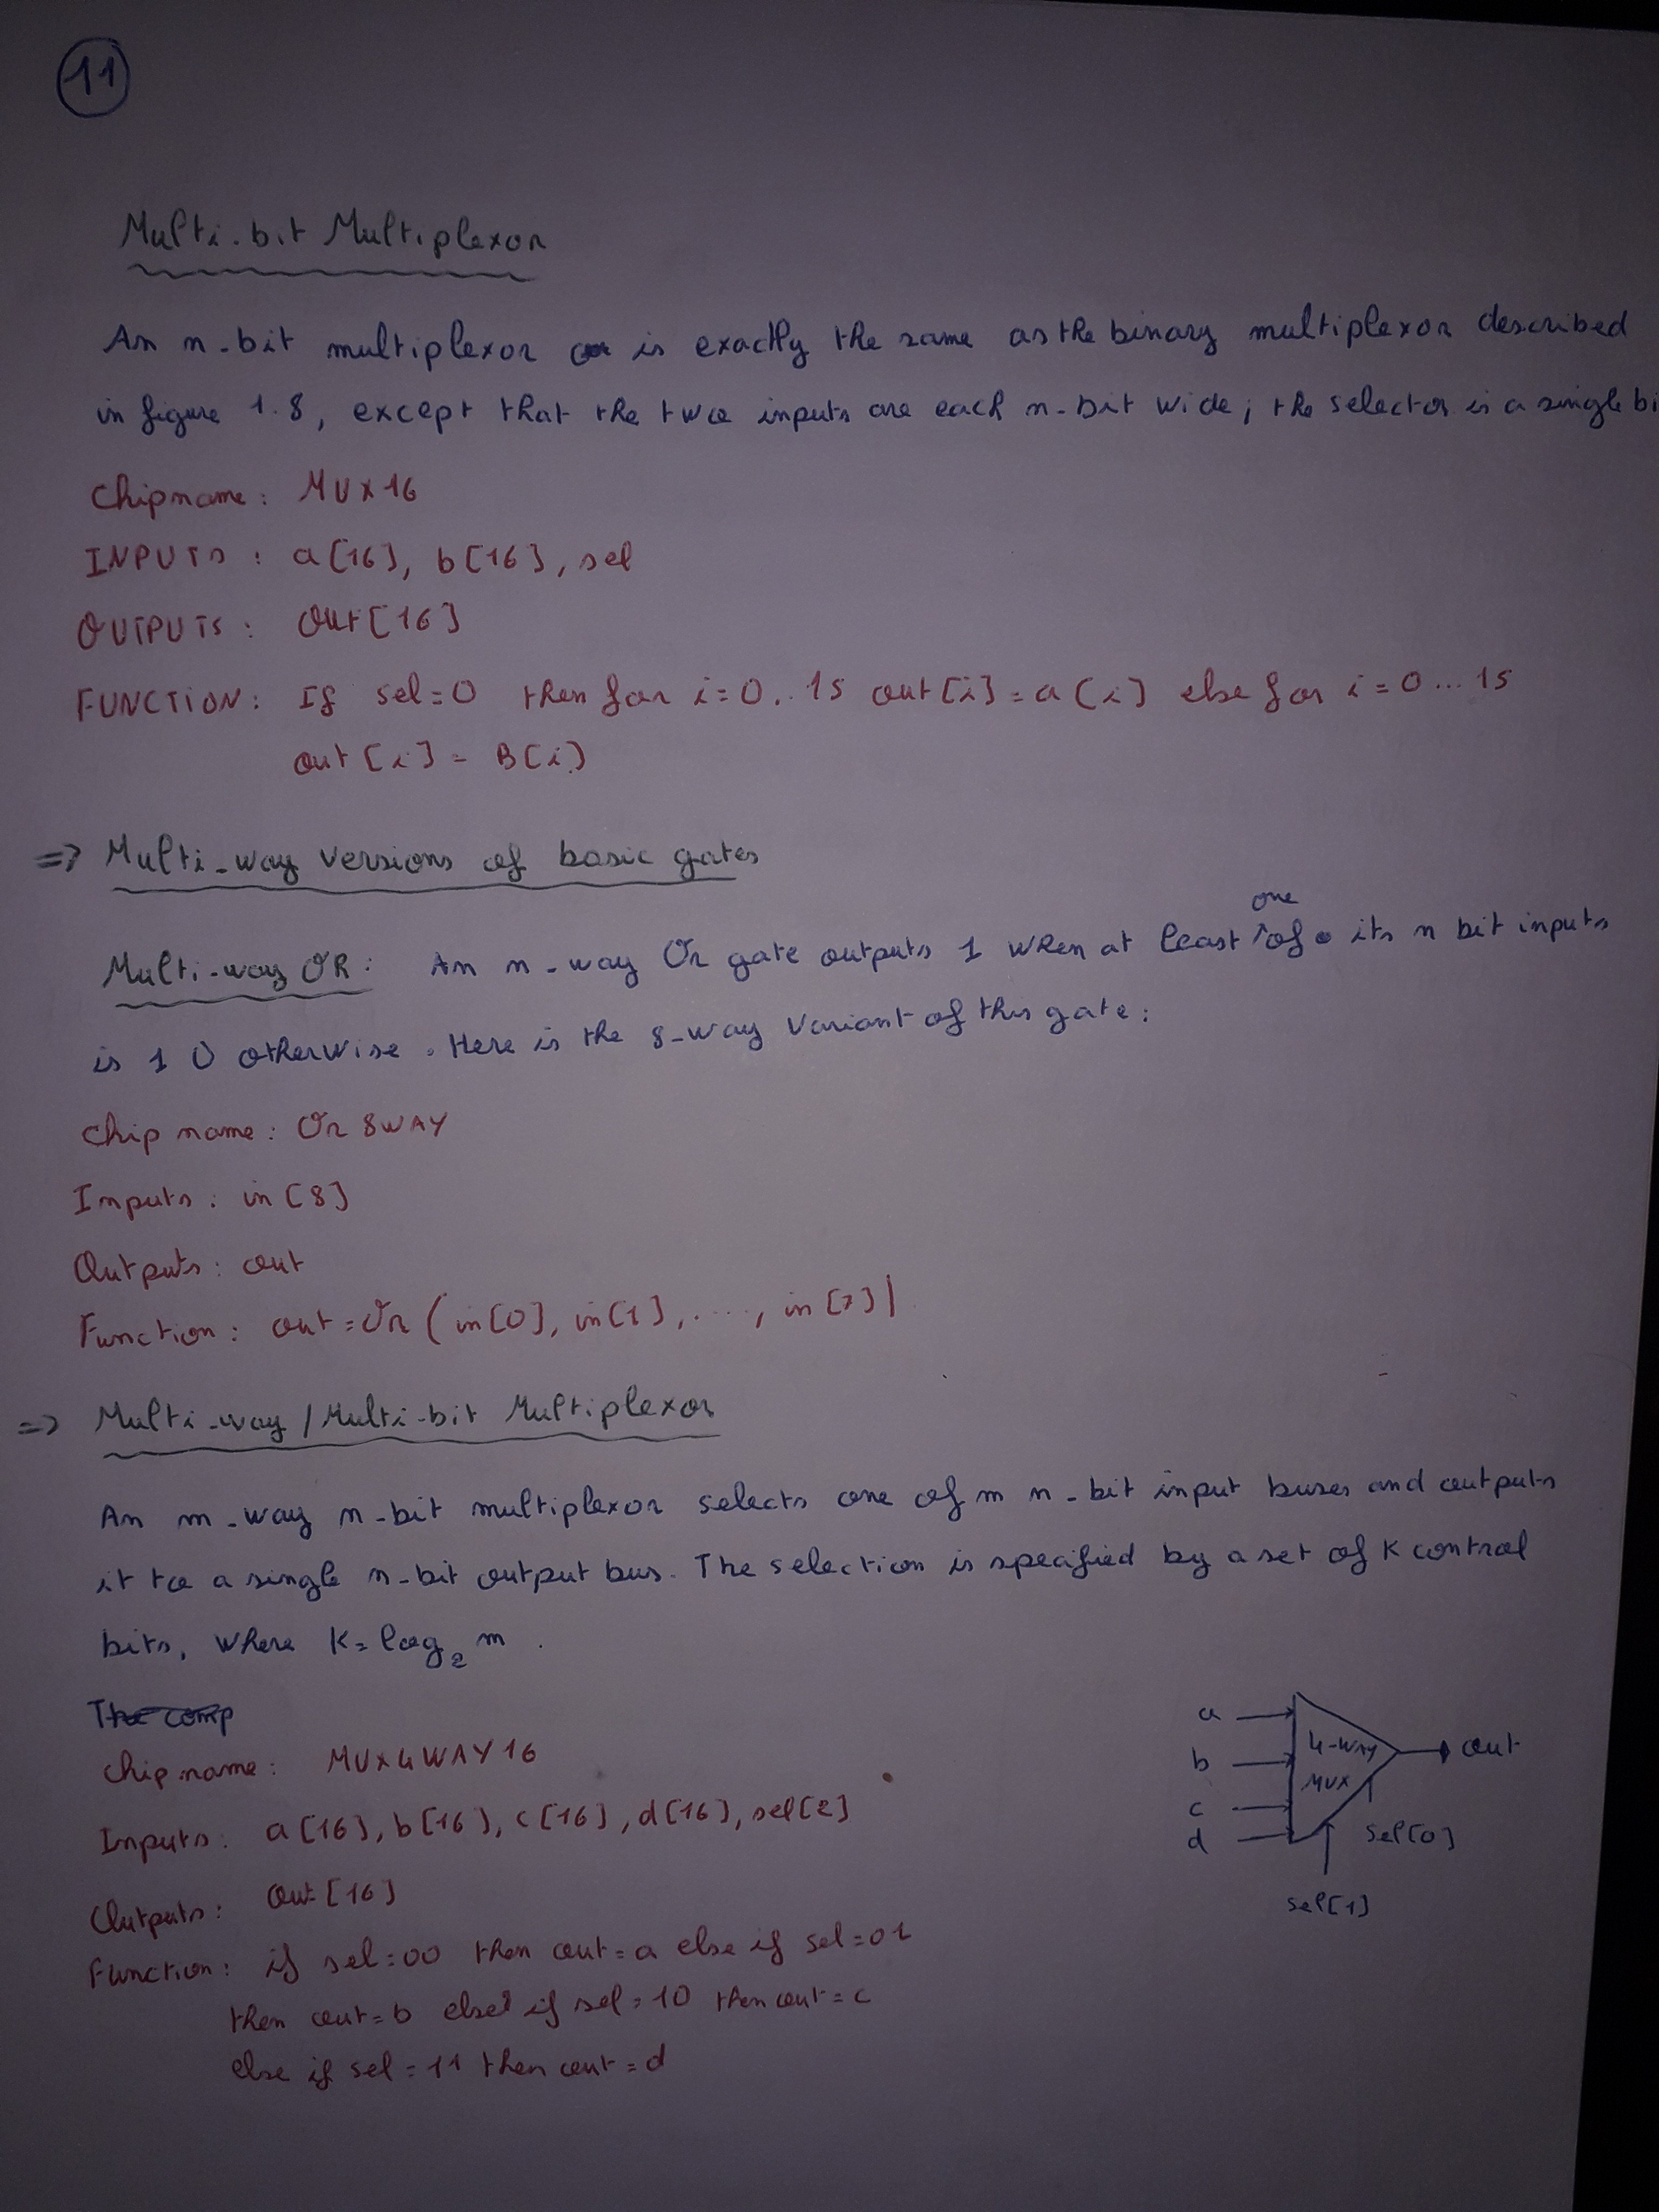 11
Multi-bit Multiplexor
An n-bit multiplexor is exactly the same as the binary multiplexor described
in figure 1.8, except that the two inputs are each n-bit wide; the selector is a single bi
Chipname: MUX16
INPUTS: a[16], b[16], sel
OUTPUTS: Out[16]
FUNCTION: If sel=0 then for i=0..15 out[i]=a[i] else for i=0...15
out[i] = B[i]
=> Multi-way versions of basic gates
one
Multi-way OR: An n-way Or gate outputs 1 when at least of its n bit inputs
is 1 0 otherwise. Here is the 8-way variant of this gate:
Chip name: Or 8WAY
Inputs: in[8]
Outputs: out
Function: out=Or(in[0], in[1], ...., in[7])
=> Multi-way/Multi-bit Multiplexor
An m-way n-bit multiplexor selects one of m n-bit input buses and outputs
it to a single n-bit output bus. The selection is specified by a set of K control
bits, where K=log₂ m.
The comp
Chip name: MUX4WAY16
Inputs: a[16], b[16], c[16], d[16], sel[2]
Outputs: Out[16]
Function: if sel=00 then out=a else if sel=01
then out=b else if sel=10 then out=c
else if sel=11 then out=d
a
b
c
d
4-WAY
MUX
out
sel[0]
sel[1]